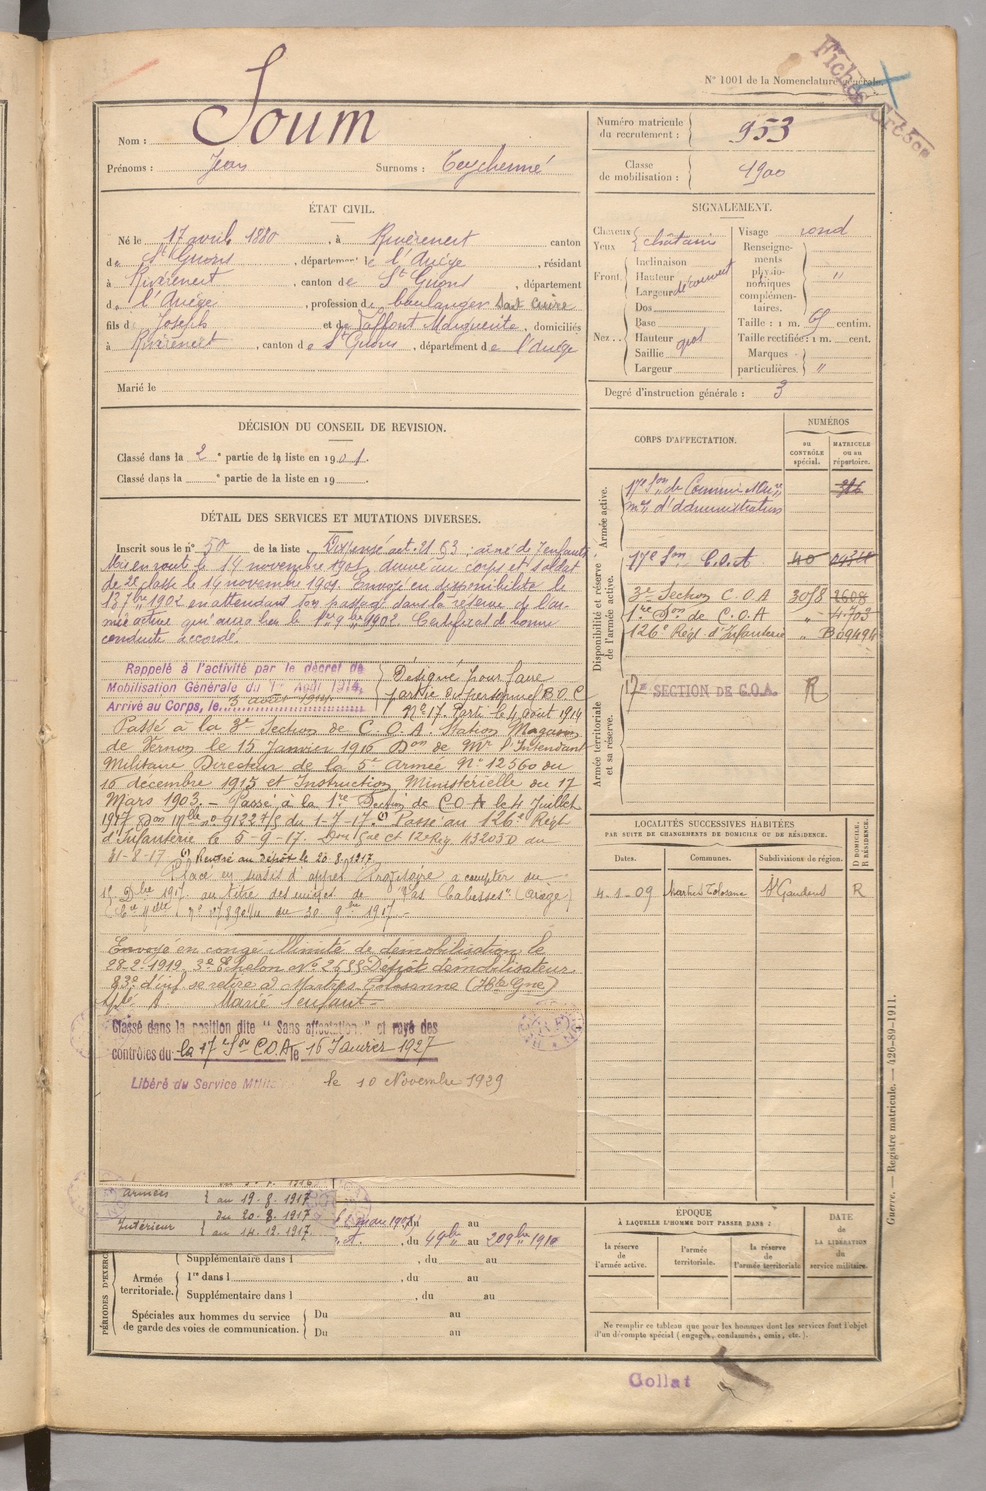 N° 1001 de la Nomenclature générale.
Nom : Soum
Prénoms : Jean Surnoms : Teychenné
Numéro matricule du recrutement : 953
Classe de mobilisation : 1900
ÉTAT CIVIL.
Né le 17 avril 1880, à Rivèrenert canton
de St Girons, département de l'Ariège, résidant
à Rivèrenert, canton de St Girons, département
de l'Ariège, profession de boulanger sait cuire
fils de Joseph et de Laffont Marguerite, domiciliés
à Rivèrenert, canton de St Girons, département de l'Ariège
Marié le
SIGNALEMENT.
Cheveux
Yeux châtains
Front Inclinaison
Hauteur
Largeur découvert
Nez Dos
Base
Hauteur gros
Saillie
Largeur
Visage rond
Renseignements physionomiques complémentaires. "
Taille : 1 m. 69 centim.
Taille rectifiée : 1 m. cent.
Marques particulières. "
Degré d'instruction générale : 3
DÉCISION DU CONSEIL DE REVISION.
Classé dans la 2e partie de la liste en 1901.
Classé dans la e partie de la liste en 19
DÉTAIL DES SERVICES ET MUTATIONS DIVERSES.
Inscrit sous le n° 50 de la liste Dispensé art. 21 aîné de 7 enfants
Mis en route le 14 novembre 1901, arrivé au corps et soldat
de 2e classe le 14 novembre 1901. Envoyé en disponibilité le
13 7bre 1902 en attendant son passage dans la réserve de l'ar-
mée active qui aura lieu le 1er 9bre 1902. Certificat de bonne
conduite accordé.
Rappelé à l'activité par le décret de
Mobilisation Générale du 1er Août 1914,
Arrivé au Corps, le 3 août 1914
Désigné pour faire
partie du personnel B.O.C
N° 17. Parti le 4 août 1914
Passé à la 3e Section de C.O.A. Station Magasin
de Vernon le 15 Janvier 1916 Don de Mr l'Intendant
Militaire Directeur de la 5e Armée N° 12560 du
16 décembre 1915 et Instruction Ministérielle du 17
Mars 1903. — Passé à la 1re Section de C.O.A le 4 Juillet
1917 Don Mlle n° 91227/5 du 1-7-17. (1) Passé au 126e Régt
d'Infanterie le 5-9-17. Don Gal Ct 12e Rég. A3203D du
31-8-17 (1) Rentré au dépôt le 20-8-1917
Placé en sursis d'appel à compter du
15 Dbre 1917 au titre des mines de "Las Cabesses" (Ariège)
du 30 9bre 1917
Envoyé en congé illimité de démobilisation le
28-2-1919 3e Echelon n° Dépôt démobilisateur
83e d'inf. se retire à Martres Tolosanne (Hte Gne)
Marié 1 enfant
Classé dans la position dite "Sans affectation" et rayé des
contrôles du la 17e Son C.O.A le 16 Janvier 1927
Libéré du Service le 10 Novembre 1929
armées
au 19-8-1917
Intérieur du 20-8-1917
au 14-12-1917
du au
du 4 9bre au 20 9bre 1910
PÉRIODES D'EXERC
Supplémentaire dans l , du au
Armée territoriale. 1re dans l , du au
Supplémentaire dans l , du au
Spéciales aux hommes du service
de garde des voies de communication. Du au
Du au
CORPS D'AFFECTATION.
NUMÉROS
au CONTRÔLE spécial.
MATRICULE ou au répertoire.
Armée active.
17e Son de Commis
d'administration
Disponibilité et réserve de l'armée active.
17e Son C.O.A 40
3e Section C.O.A 3058 2608
1re Son de C.O.A " 4703
126e Régt d'Infanterie "
Armée territoriale et sa réserve.
17e SECTION DE C.O.A. R
LOCALITÉS SUCCESSIVES HABITÉES
PAR SUITE DE CHANGEMENTS DE DOMICILE OU DE RÉSIDENCE.
Dates. Communes. Subdivisions de région. D DOMICILE. R RÉSIDENCE.
4-1-09 Martres Tolosane St Gaudens R
ÉPOQUE
À LAQUELLE L'HOMME DOIT PASSER DANS :
la réserve de l'armée active.
l'armée territoriale.
la réserve de l'armée territoriale
DATE de LA LIBÉRATION du service militaire.
Ne remplir ce tableau que pour les hommes dont les services font l'objet
d'un décompte spécial (engagés, condamnés, omis, etc.).
Guerre. — Registre matricule. — 426-89-1911.
Collat